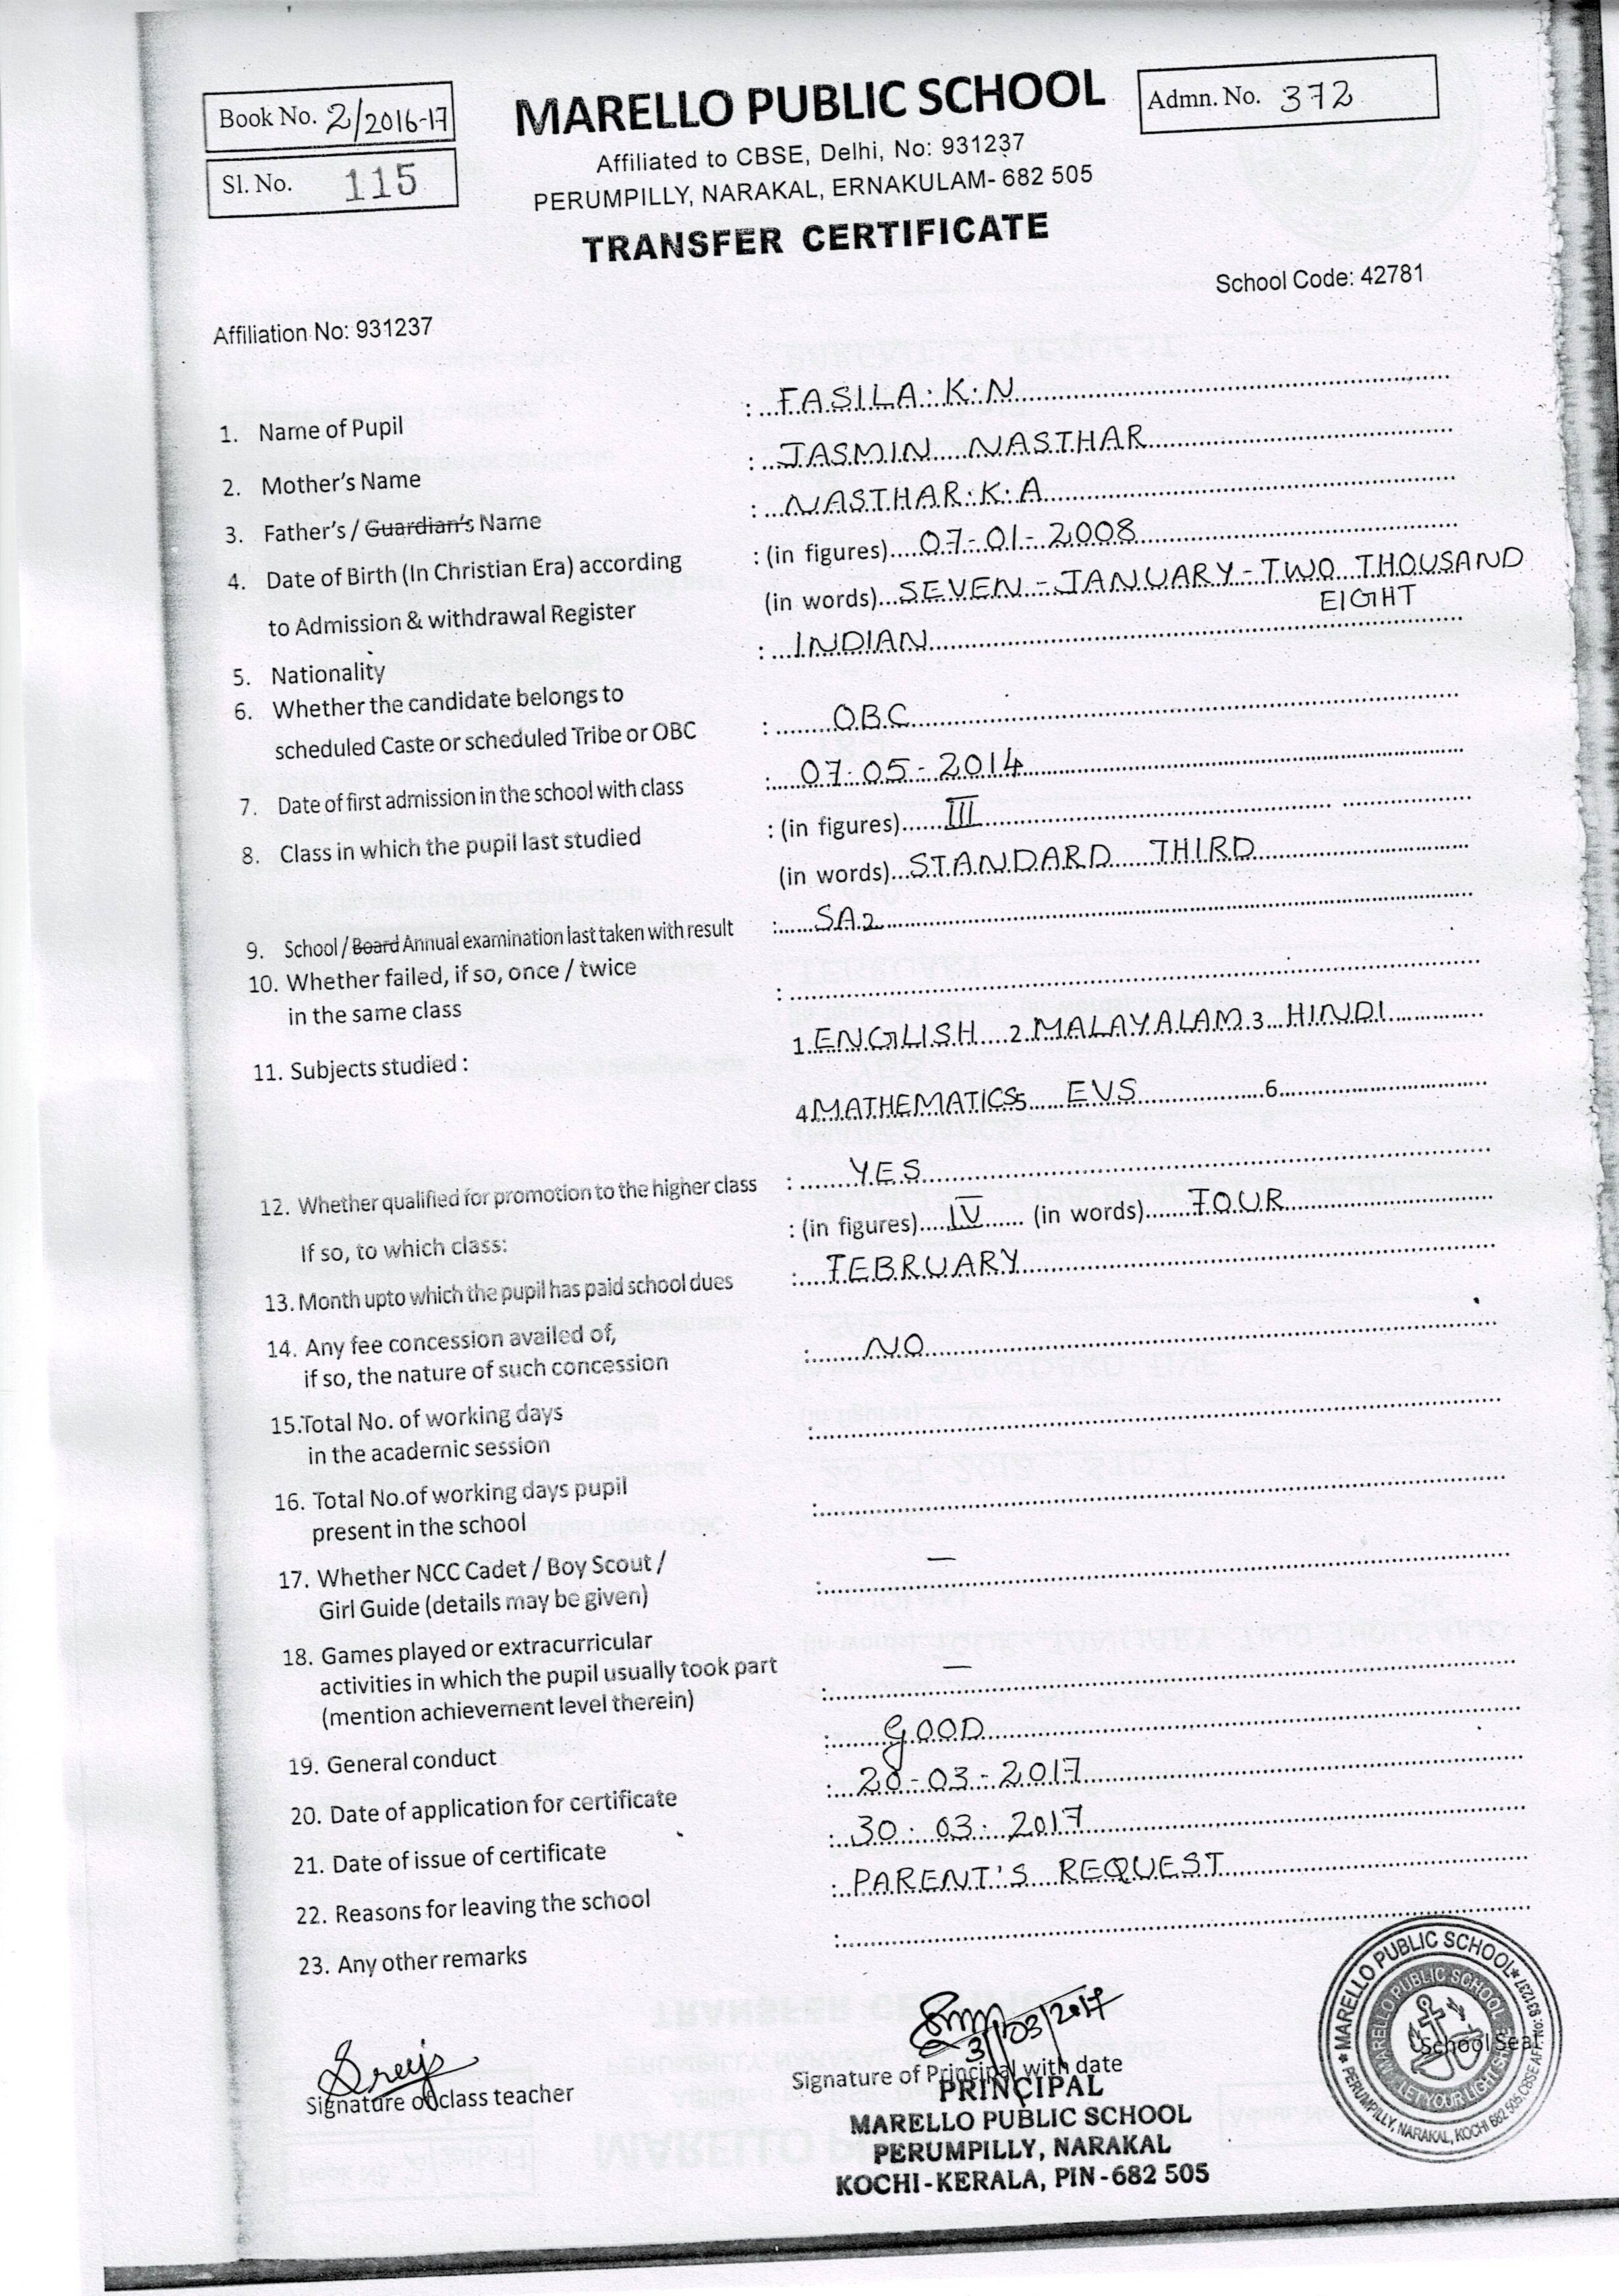 Book No. 2/2016-17
Sl. No. 115
MARELLO PUBLIC SCHOOL
Affiliated to CBSE, Delhi, No: 931237
PERUMPILLY, NARAKAL, ERNAKULAM- 682 505
TRANSFER CERTIFICATE
Admn. No. 372
School Code: 42781
Affiliation No: 931237
1. Name of Pupil : FASILA.K.N
2. Mother's Name : JASMIN NASTHAR
3. Father's / Guardian's Name : NASTHAR.K.A
4. Date of Birth (In Christian Era) according : (in figures) 07-01-2008
to Admission & withdrawal Register (in words) SEVEN - JANUARY - TWO THOUSAND
EIGHT
5. Nationality : INDIAN
6. Whether the candidate belongs to
scheduled Caste or scheduled Tribe or OBC : OBC
7. Date of first admission in the school with class : 07-05-2014
8. Class in which the pupil last studied : (in figures) III
(in words) STANDARD THIRD
9. School / Board Annual examination last taken with result : SA2
10. Whether failed, if so, once / twice
in the same class :
11. Subjects studied : 1. ENGLISH 2. MALAYALAM 3 HINDI
4 MATHEMATICS 5 EVS 6
12. Whether qualified for promotion to the higher class : YES
If so, to which class: : (in figures) IV (in words) FOUR
13. Month upto which the pupil has paid school dues : FEBRUARY
14. Any fee concession availed of,
if so, the nature of such concession : NO
15. Total No. of working days
in the academic session :
16. Total No.of working days pupil
present in the school :
17. Whether NCC Cadet / Boy Scout /
Girl Guide (details may be given) : —
18. Games played or extracurricular
activities in which the pupil usually took part
(mention achievement level therein) : —
19. General conduct : GOOD
20. Date of application for certificate : 20-03-2017
21. Date of issue of certificate : 30-03-2017
22. Reasons for leaving the school : PARENT'S REQUEST
23. Any other remarks :
Sreeja
Signature of class teacher
31/03/2017
Signature of Principal with date
PRINCIPAL
MARELLO PUBLIC SCHOOL
PERUMPILLY, NARAKAL
KOCHI-KERALA, PIN-682 505
School Seal
MARELLO PUBLIC SCHOOL
PERUMPILLY, NARAKAL, KOCHI 682 505, CBSE AFF. No: 931237
MARELLO PUBLIC SCHOOL
LET YOUR LIGHT SHINE